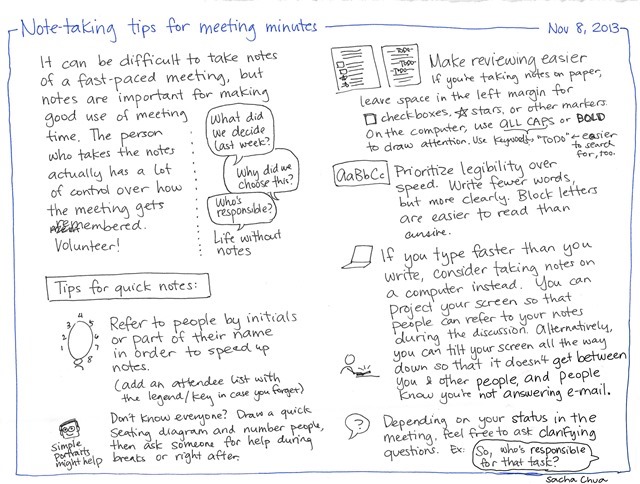 Note-taking tips for meeting minutes
Nov 8, 2013
It can be difficult to take notes
of a fast-paced meeting, but
notes are important for making
good use of meeting
time. The person
who takes the notes
actually has a lot
of control over how
the meeting gets
remembered.
Volunteer!
What did
we decide
last week?
Why did we
choose this?
Who's
responsible?
Life without
notes
Tips for quick notes:
1 2 3 4 5 6 7 8
Refer to people by initials
or part of their name
in order to speed up
notes.
(add an attendee list with
the legend/key in case you forget)
simple
portraits
might help
Don't know everyone? Draw a quick
seating diagram and number people,
then ask someone for help during
breaks or right after.
TODO
TODO
TODO
Make reviewing easier
If you're taking notes on paper,
leave space in the left margin for
checkboxes, stars, or other markers.
On the computer, use ALL CAPS or BOLD
to draw attention. Use keywords, "TODO" ← easier
to search
for, too.
AaBbCc
Prioritize legibility over
speed. Write fewer words,
but more clearly. Block letters
are easier to read than
cursive.
If you type faster than you
write, consider taking notes on
a computer instead. You can
project your screen so that
people can refer to your notes
during the discussion. Alternatively,
you can tilt your screen all the way
down so that it doesn't get between
you & other people, and people
know you're not answering e-mail.
?
Depending on your status in the
meeting, feel free to ask clarifying
questions. Ex:
So, who's responsible
for that task?
sacha chua